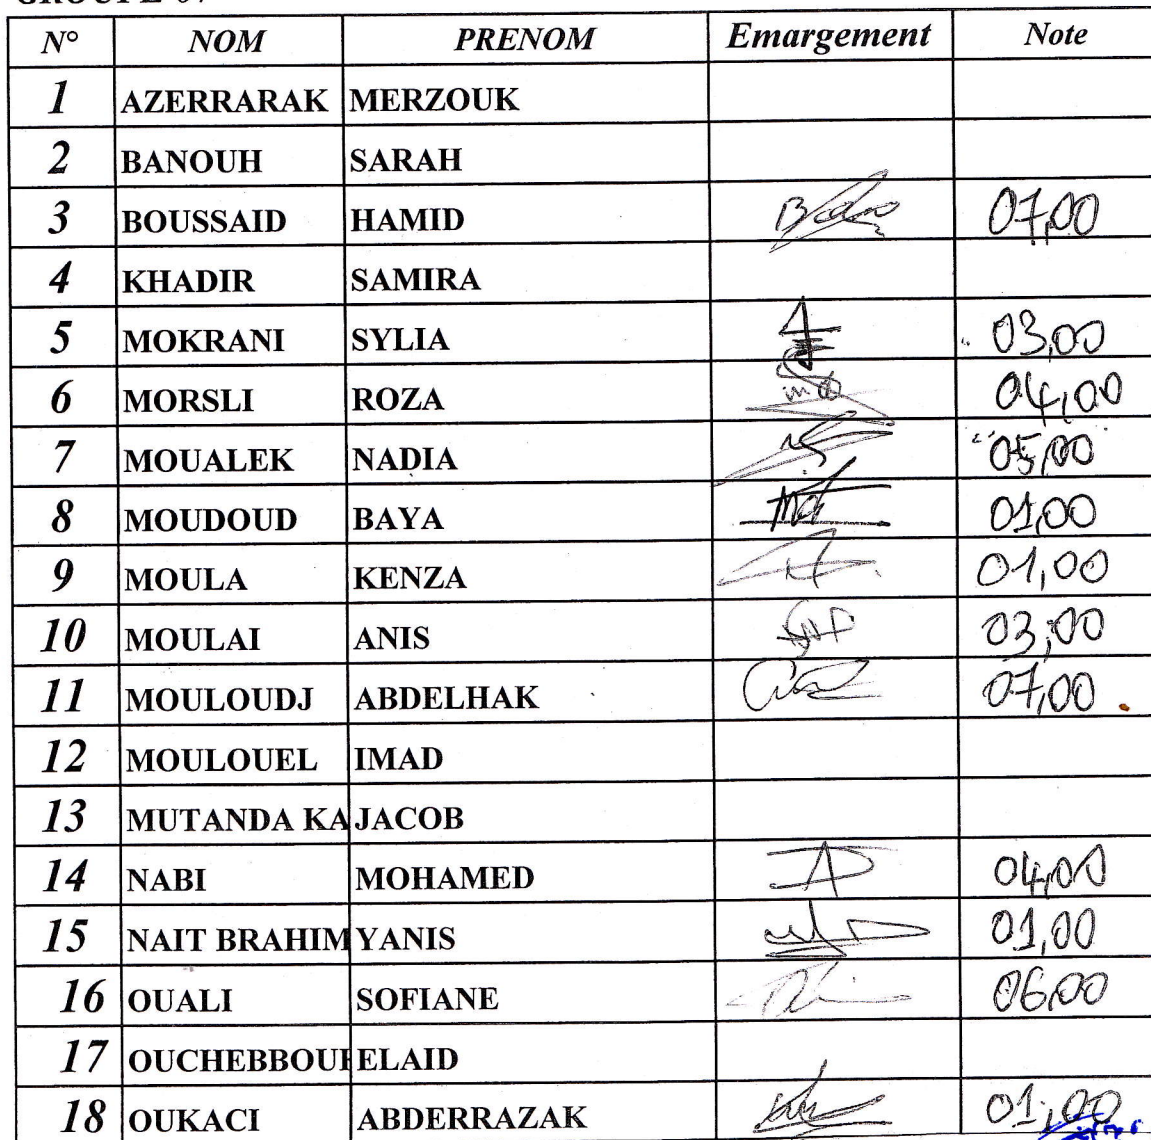 N° NOM PRENOM Emargement Note
1 AZERRARAK MERZOUK
2 BANOUH SARAH
3 BOUSSAID HAMID 07,00
4 KHADIR SAMIRA
5 MOKRANI SYLIA 03,00
6 MORSLI ROZA 04,00
7 MOUALEK NADIA 05,00
8 MOUDOUD BAYA 01,00
9 MOULA KENZA 01,00
10 MOULAI ANIS 03,00
11 MOULOUDJ ABDELHAK 07,00
12 MOULOUEL IMAD
13 MUTANDA KA JACOB
14 NABI MOHAMED 04,00
15 NAIT BRAHIM YANIS 01,00
16 OUALI SOFIANE 06,00
17 ELAID
18 OUKACI ABDERRAZAK 01,00